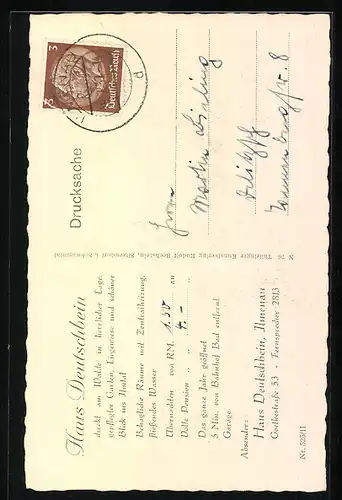 Haus Deutschbein
direkt am Walde in herrlicher Lage,
gepflegter Garten, Liegewiese und schöner
Blick ins Ilmtal
Behagliche Räume mit Zentralheizung,
fließendes Wasser
Übernachten von RM. 1.50 an
Volle Pension „ „ 4.– „
Das ganze Jahr geöffnet
5 Min. von Bahnhof Bad entfernt.
Garage
Absender:
Haus Deutschbein, Ilmenau
Goethestraße 53 - Fernsprecher 2813
Nr. 52561
Thüringer Kunstverlag Rudolf Bechstein, Sitzendorf i. Schwarzatal
Drucksache
3
Deutsches Reich
d
Herrn
Martin
Delitzsch
8